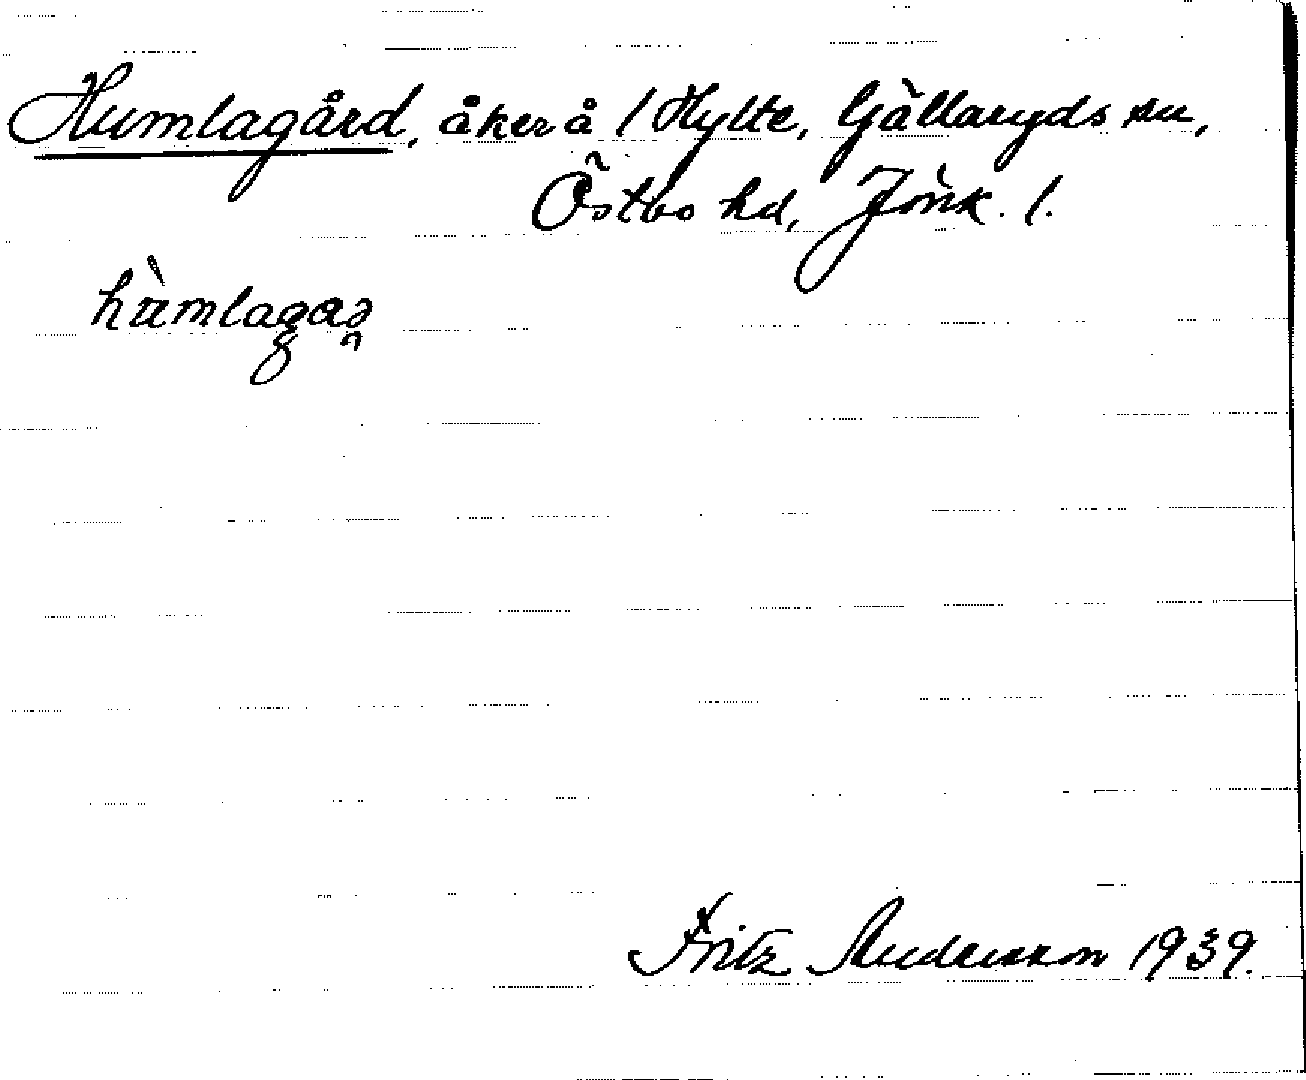 Humlagård, åker å 1 Hylte, Gällaryds sn,
Östbo hd, Jönk. l.
hùmlagaə̯
Fritz Andersson 1939.